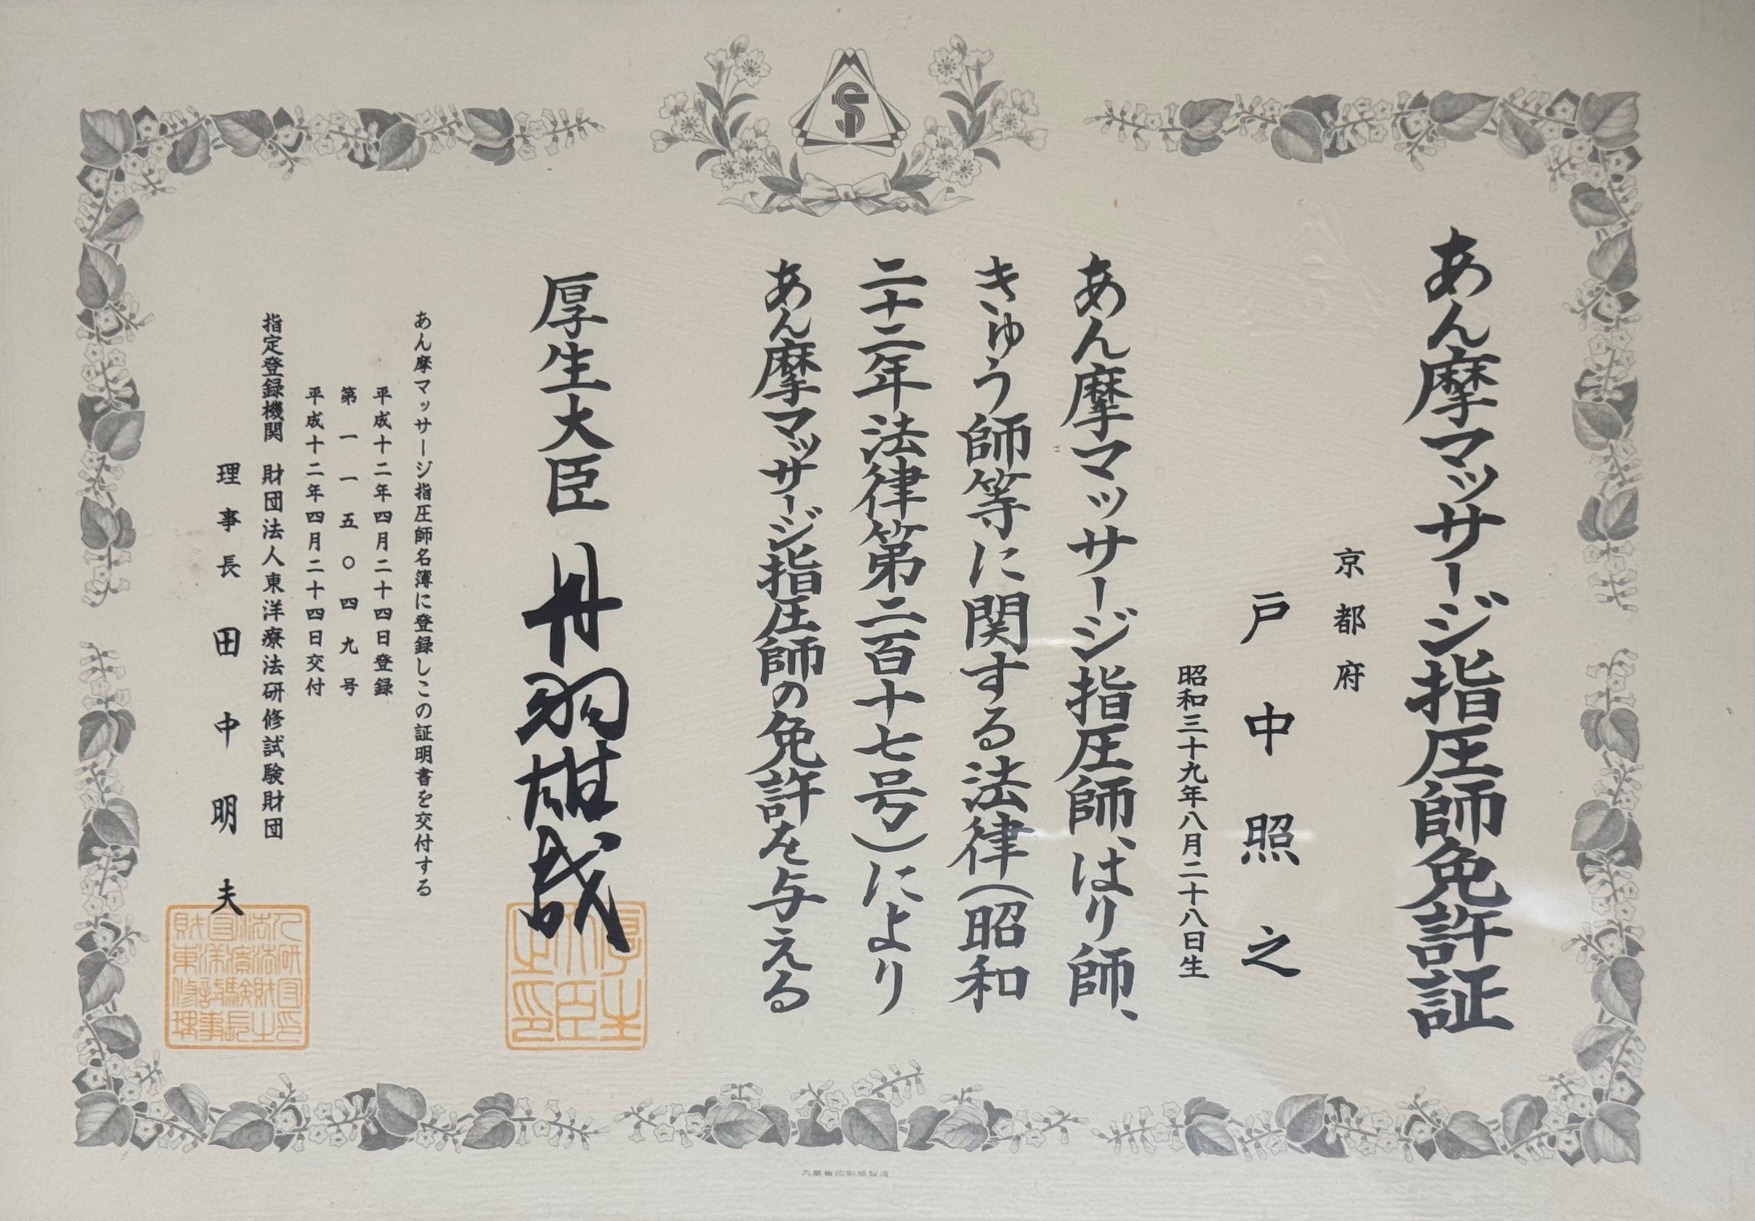 あん摩マッサージ指圧師免許証
京都府
戸中照之
昭和三十九年八月二十八日生
あん摩マッサージ指圧師、はり師、
きゅう師等に関する法律(昭和
二十二年法律第二百十七号)により
あん摩マッサージ指圧師の免許を与える
厚生大臣 丹羽雄哉
あん摩マッサージ指圧師名簿に登録しこの証明書を交付する
平成十二年四月二十四日登録
第一一五〇四九号
平成十二年四月二十四日交付
指定登録機関 財団法人東洋療法研修試験財団
理事長 田中明夫